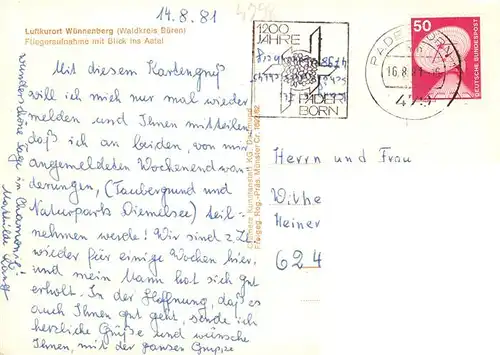 14.8.81
Luftkurort Wünnenberg (Waldkreis Büren)
Fliegeraufnahme mit Blick ins Aatal
Mit diesem Kartengruß
will ich mich nur mal wieder
melden und Ihnen mitteilen,
daß ich an beiden, von mir
angemeldeten Wochenendwan-
derungen, (Taubergrund und
Naturparks Diemelsee) teil-
nehmen werde! Wir sind z. Zt.
wieder für einige Wochen hier,
und mein Mann hat sich gut
erholt. In der Hoffnung, daß es
auch Ihnen gut geht, sende ich
herzliche Grüße und wünsche
Ihnen, mit der ganzen Gruppe
wunderschöne Tage in Chamonix!
Mathilde
1200
JAHRE
PADER
BORN
PADERBORN
16.8.81
479
50
DEUTSCHE BUNDESPOST
Herrn und Frau
Heiner
624